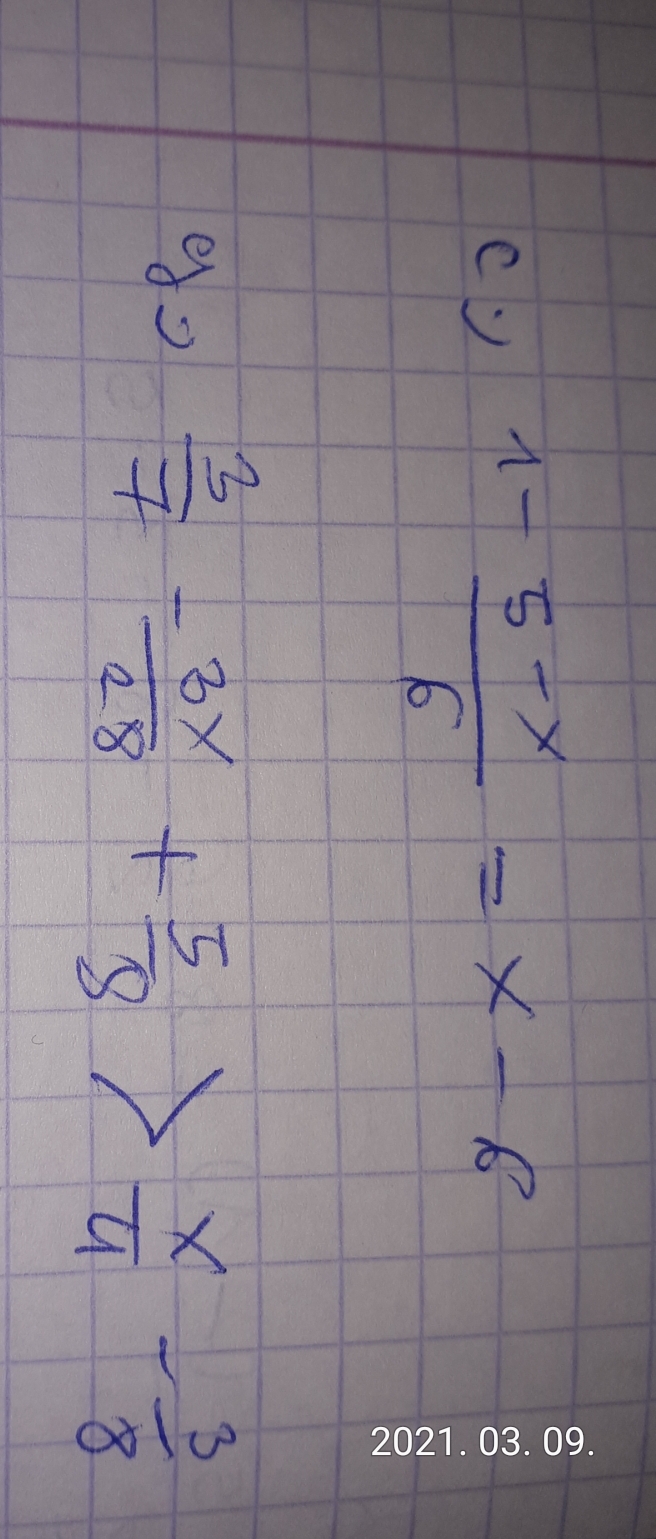 c) 1 - \frac{5-x}{6} = x - 6
g) \frac{3}{7} - \frac{3x}{28} + \frac{5}{8} > \frac{x}{4} - \frac{3}{8}
2021. 03. 09.